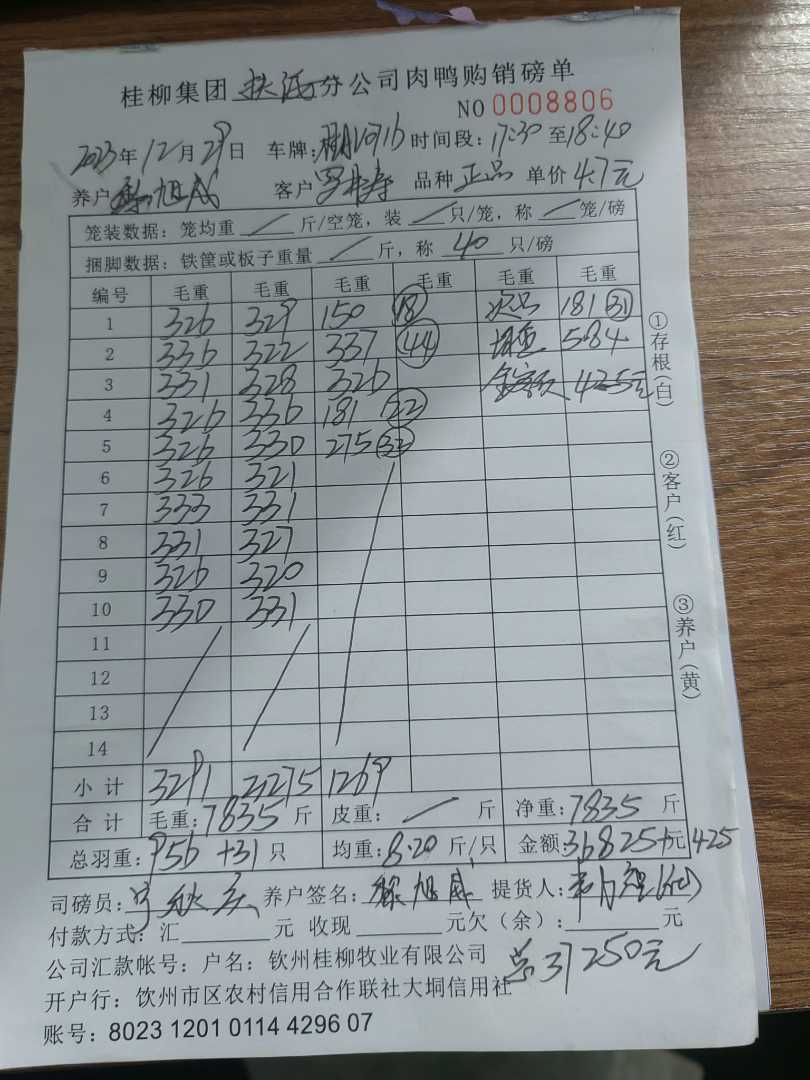 桂柳集团 扶绥 分公司肉鸭购销磅单
NO 0008806
2023年12月29日 车牌: 时间段:17:30至18:40
养户 旭威 客户 罗 寿 品种 正品 单价 4.7元
笼装数据: 笼均重 / 斤/空笼, 装 / 只/笼, 称 / 笼/磅
捆脚数据: 铁筐或板子重量 / 斤, 称 40 只/磅
编号 毛重 毛重 毛重 毛重 毛重 毛重
1 326 329 150 (18) 次品 181 (31)
2 336 322 337 (44) 均重 5.84
3 331 328 326 金额 425元
4 326 336 181 (22)
5 326 330 275 (32)
6 326 321
7 333 331
8 331 327
9 326 320
10 330 331
11
12
13
14
小计 3291 3275 1269
合计 毛重: 7835 斤 皮重: / 斤 净重: 7835 斤
总羽重: 956 +31 只 均重: 8.20 斤/只 金额: 36825 + 元 425
司磅员: 养户签名: 旭威 提货人:
付款方式: 汇 元 收现 元欠(余): 元
公司汇款帐号: 户名: 钦州桂柳牧业有限公司 总37250元
开户行: 饮州市区农村信用合作联社大垌信用社
账号: 8023 1201 0114 4296 07
①存根(白)
②客户(红)
③养户(黄)